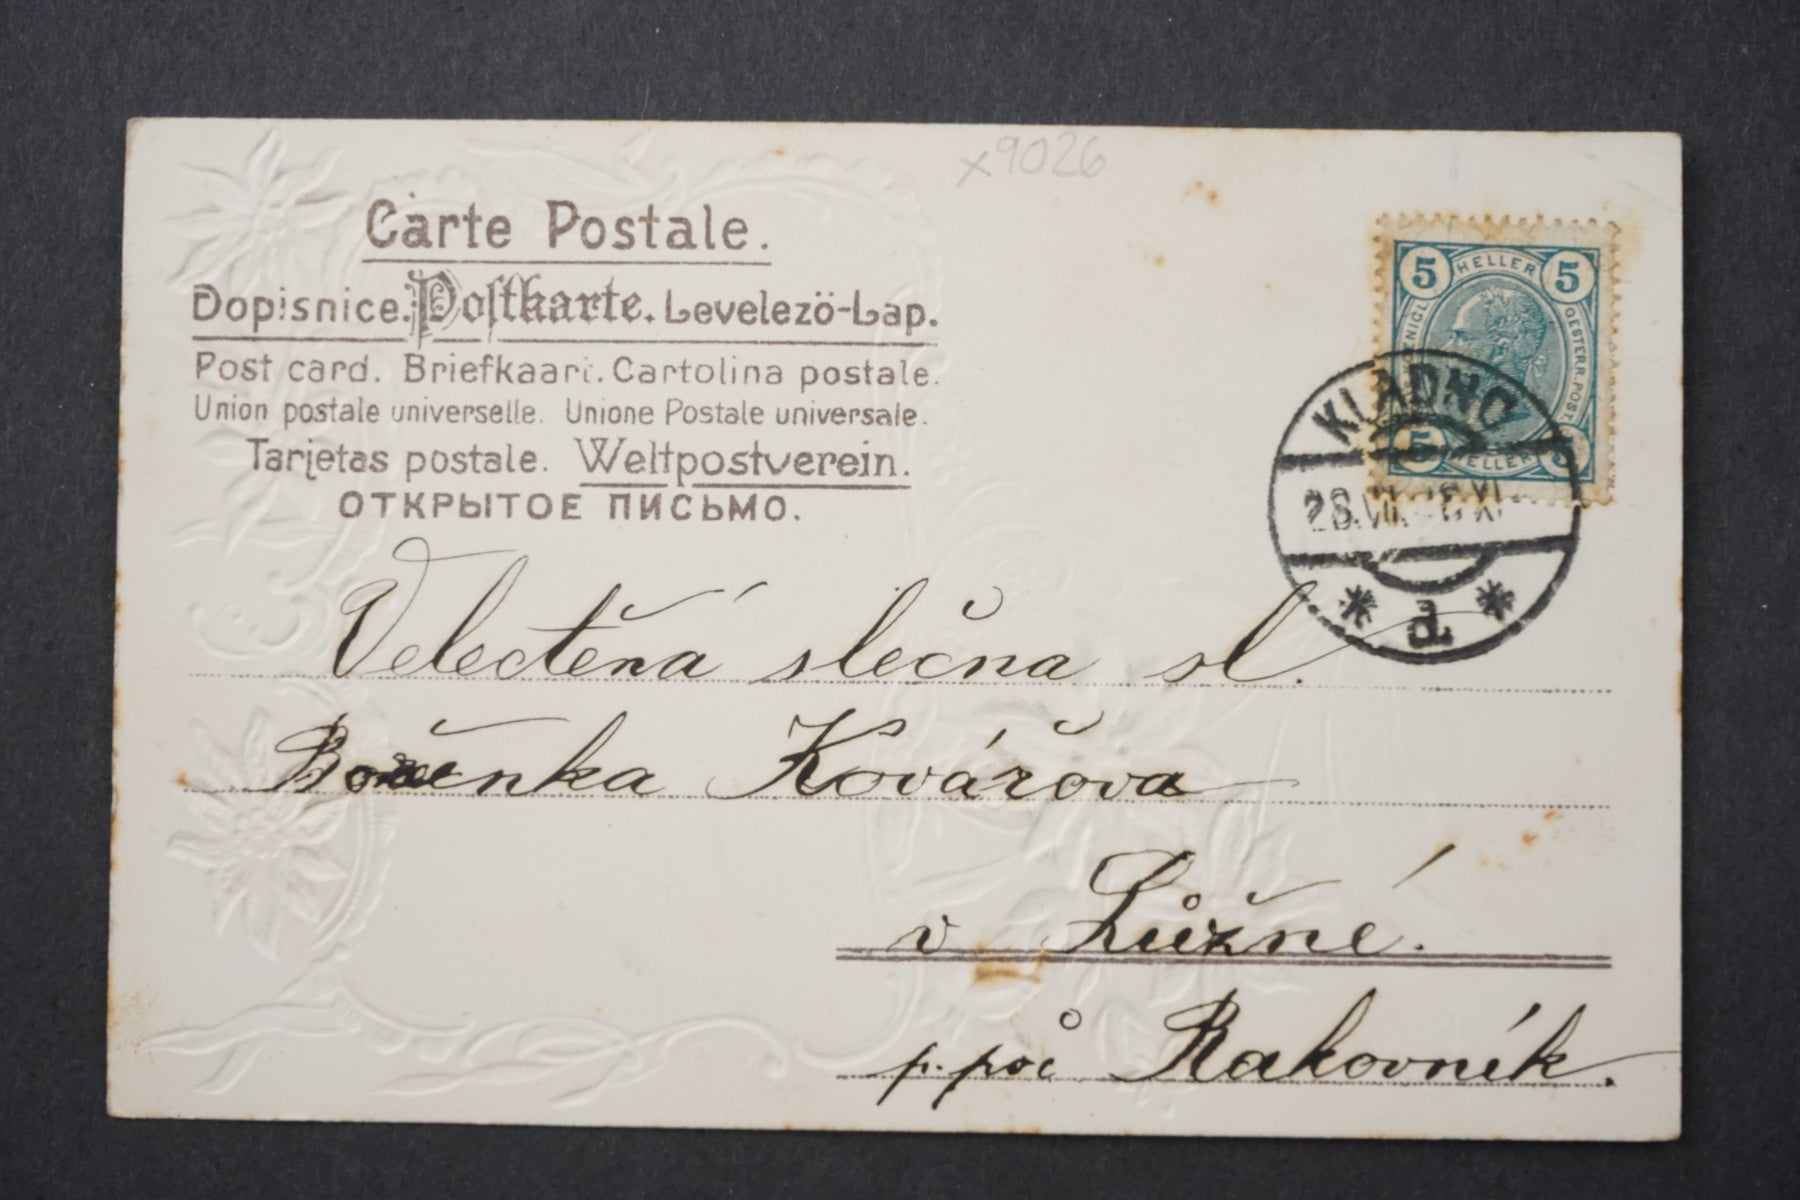 x9026
Carte Postale.
Dopisnice. Postkarte. Levelezö-Lap.
Post card. Briefkaart. Cartolina postale.
Union postale universelle. Unione Postale universale.
Tarjetas postale. Weltpostverein.
ОТКРЫТОЕ ПИСЬМО.
5 HELLER 5
OESTERR. POST.
5 HELLER 5
KLADNO
* d *
Velectěná slečna sl.
Boženka Kovářova
v Lůžné.
p. Rakovník.